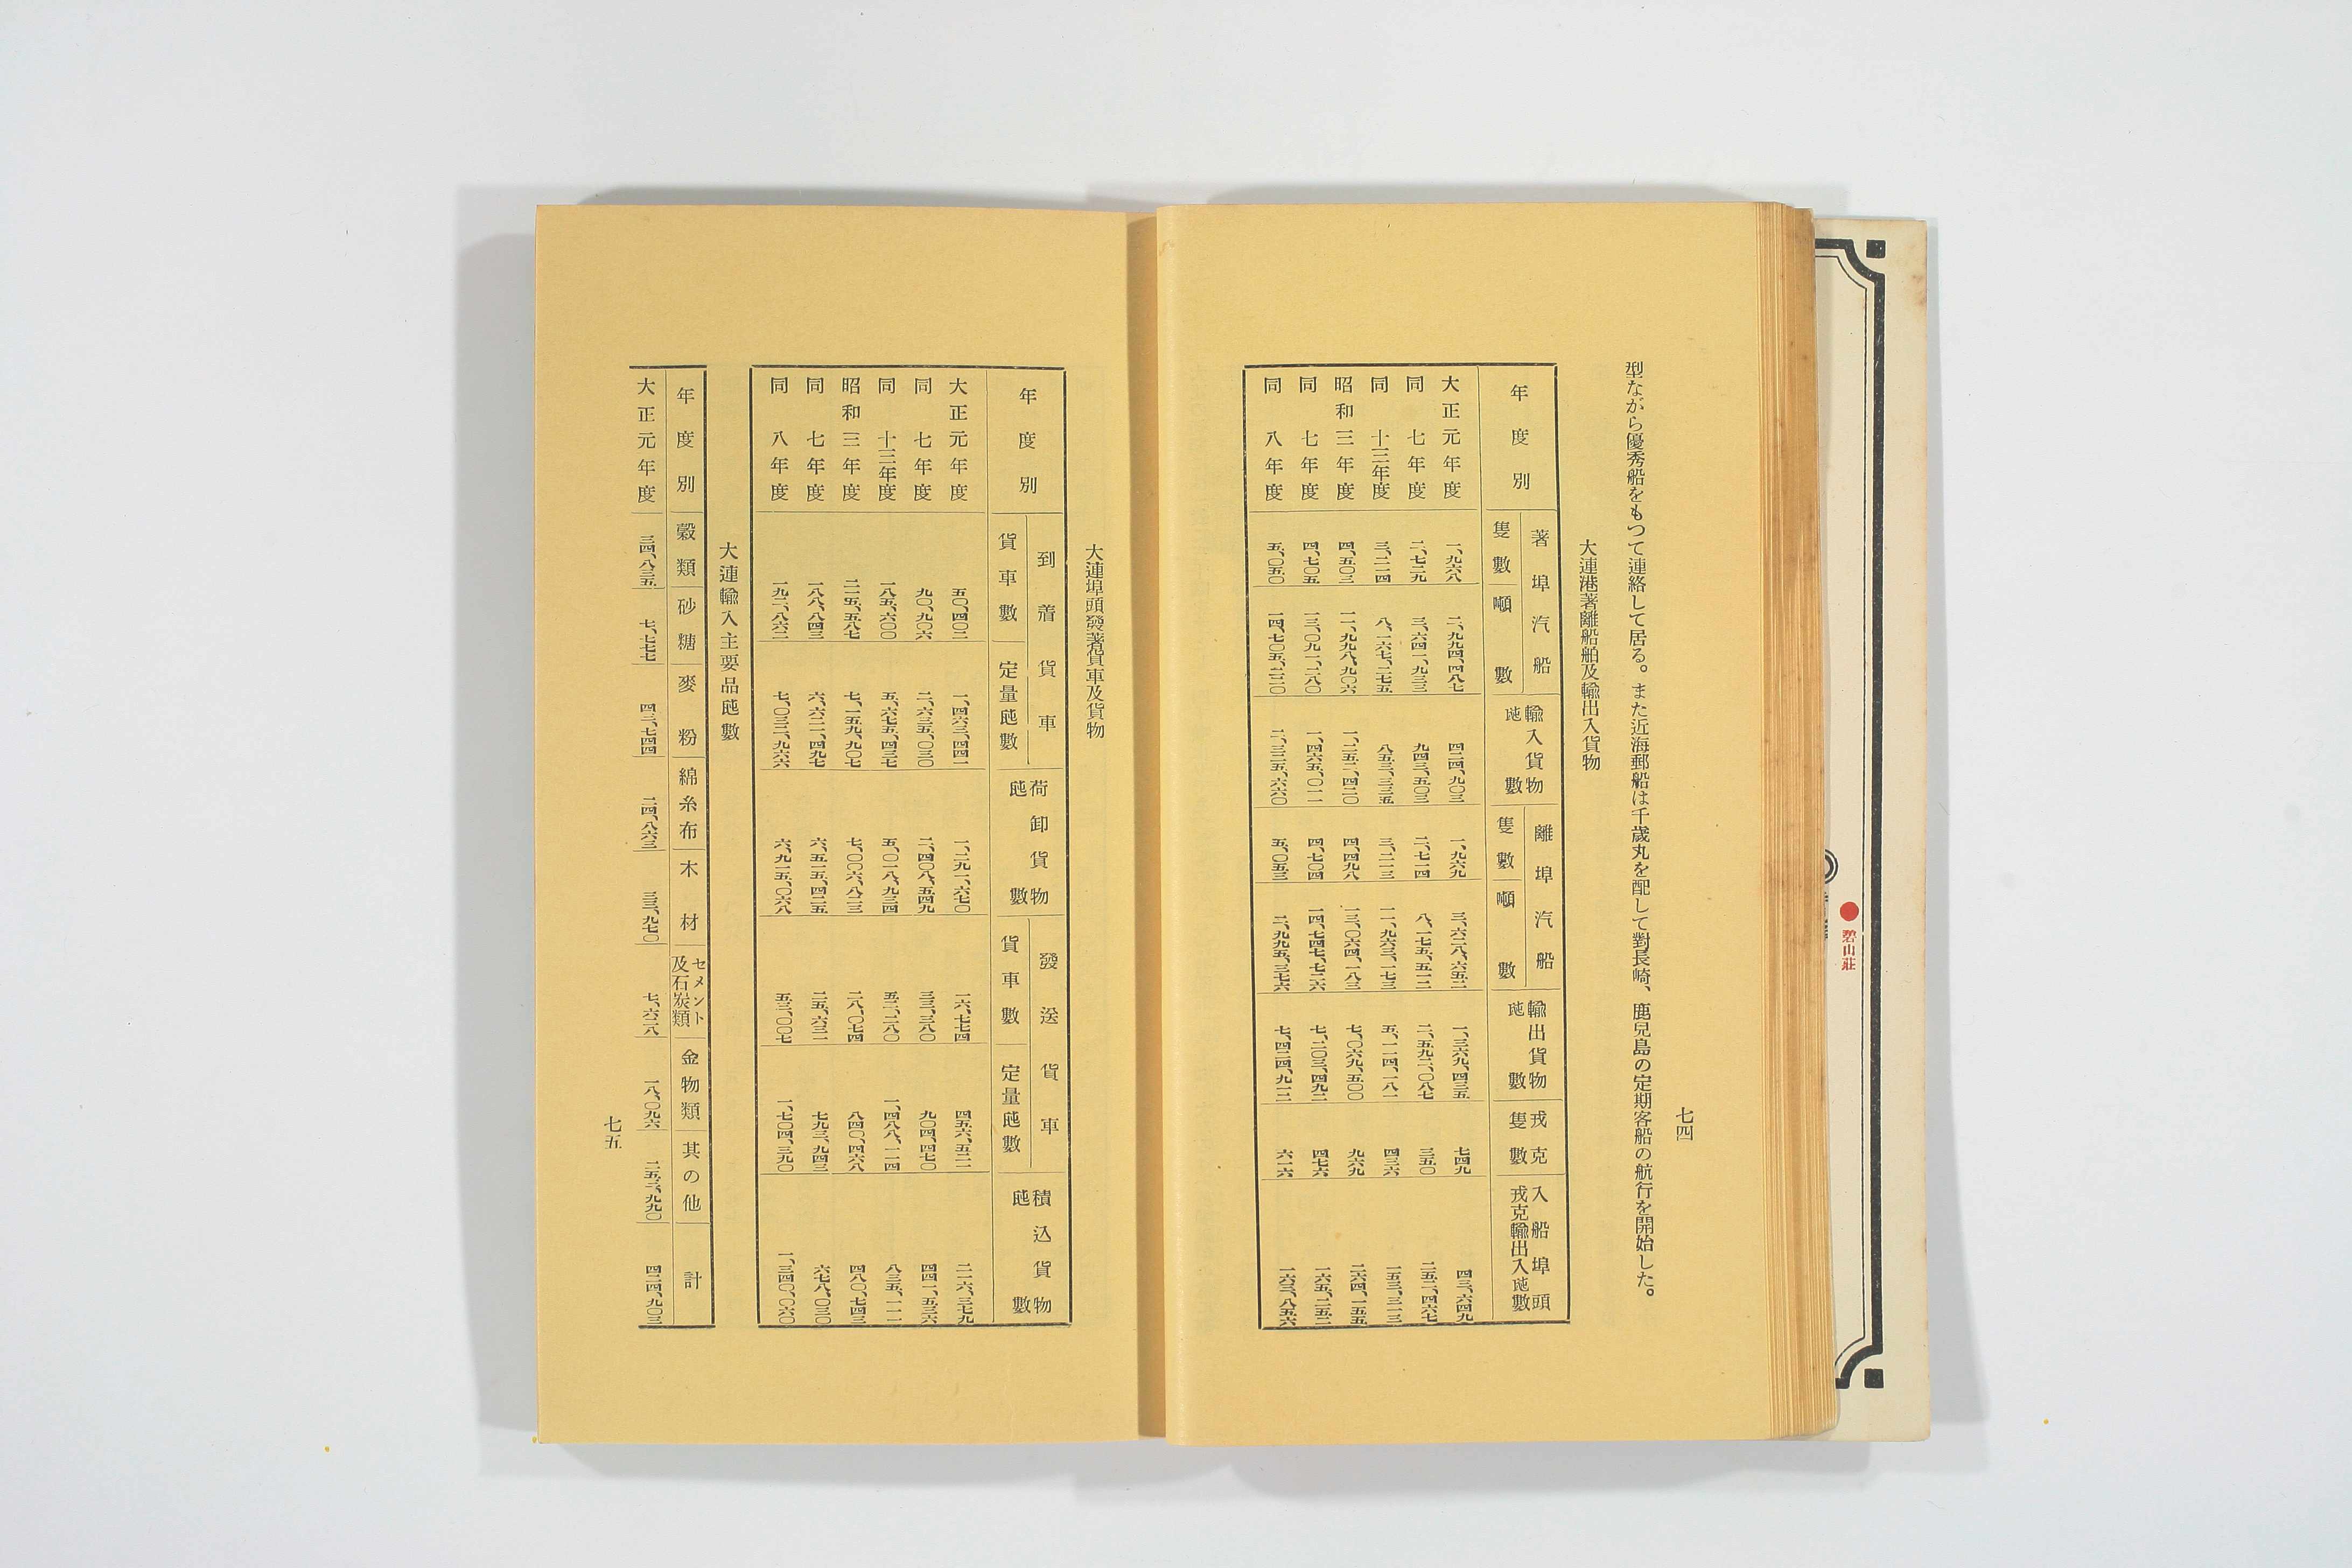 七四
型ながら優秀船をもつて連絡して居る。また近海郵船は千歳丸を配して對長崎、鹿兒島の定期客船の航行を開始した。
大連港著離船舶及輸出入貨物
年度別 著埠汽船 隻數 噸數 輸入貨物瓲數 離埠汽船 隻數 噸數 輸出貨物瓲數 戎克隻數 入船埠頭戎克輸出入瓲數
大正元年度 一、九六八 二、九九四、四八七 四二四、九〇三 一、九六九 三、六二八、六五二 一、三六九、四三五 七四九 四三、六四九
同七年度 二、七二九 三、六四一、九三三 九四三、五〇三 二、七一四 八、一七五、五一二 二、五九二、〇八七 三五〇 二五二、四六七
同十三年度 三、二一四 八、一六七、二七五 八五三、三三五 三、二一三 一一、九六三、一七三 五、一一四、一八一 四三六 一五三、三一三
昭和三年度 四、五〇三 一一、九九八、九〇六 一、二五二、四二〇 四、四九八 一三、〇六四、一八三 七、〇六九、五〇〇 九六九 二六四、一五五
同七年度 四、七〇五 一三、〇九一、二八〇 一、四六五、〇一一 四、七〇四 一四、七四七、七二六 七、二〇三、四九二 四七六 一六五、二五二
同八年度 五、〇五〇 一四、七〇五、二二〇 二、三二五、六六〇 五、〇五三 二、九九五、三七六 七、四二四、九一二 六一六 一六三、八五六
大連埠頭發著貨車及貨物
年度別 到着貨車 貨車數 定量瓲數 荷卸貨物瓲數 發送貨車 貨車數 定量瓲數 積込貨物瓲數
大正元年度 五〇、四〇二 一、四六三、四四一 一、二九一、六七〇 一六、七七四 四五六、五二一 二一六、三七九
同七年度 九〇、九〇六 二、六三五、〇三〇 二、四〇八、五四九 三三、三八〇 九〇四、四七〇 四四一、五三六
同十三年度 一八五、六〇〇 五、六七五、四三七 五、〇一八、九三四 五二、二八〇 一、四八八、一一四 八三五、一一一
昭和三年度 二二五、五八七 七、一五九、九〇七 七、〇〇六、八二三 二八、〇七四 八四〇、四六八 四八〇、七四三
同七年度 一八八、八四三 六、六二一、四九七 六、五一五、四二五 二五、六三一 七九三、九四三 六七八、〇三〇
同八年度 一九二、八六二 七、〇三二、九六六 六、九一五、〇六八 五三、〇〇七 一、七〇四、三九〇 一、三四〇、〇六〇
大連輸入主要品瓲數
年度別 穀類 砂糖 麥粉 綿糸布 木材 セメント及石炭類 金物類 其の他 計
大正元年度 三四、八三五 七、七七七 四三、七四四 二四、八六三 三三、九七〇 七、六二八 一八、〇九六 二五三、九九〇 四二四、九〇三
七五
碧山莊